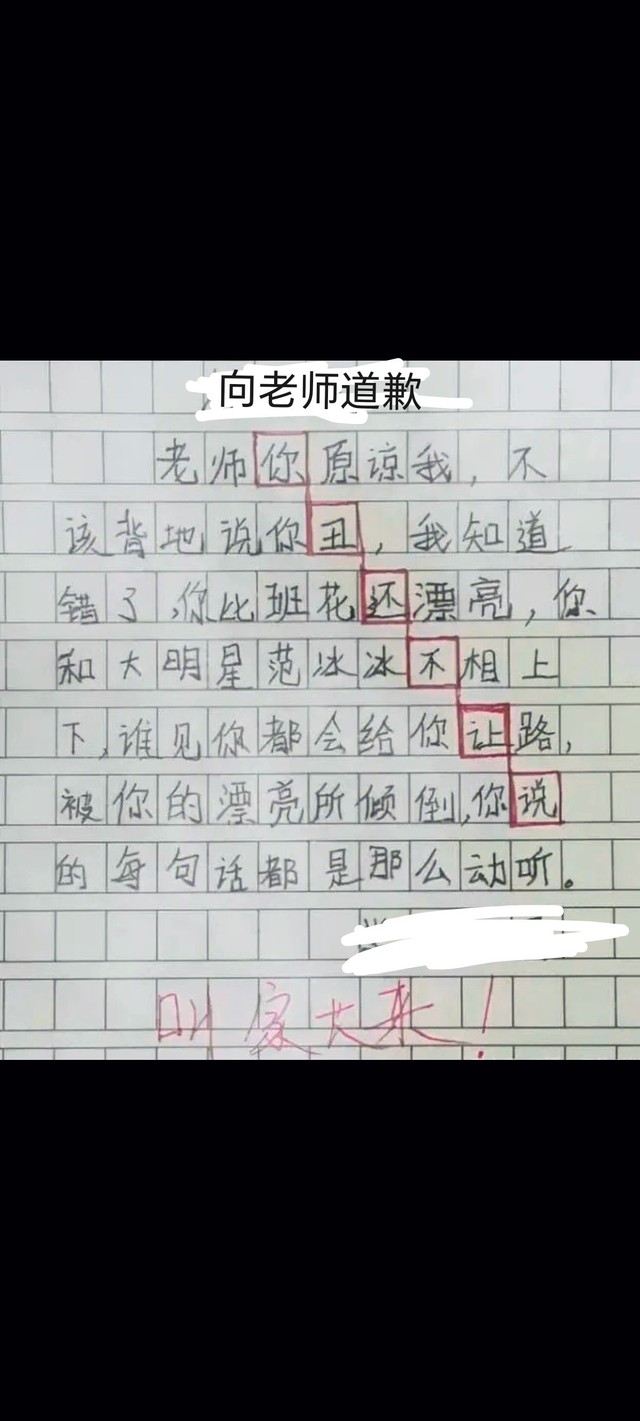 向老师道歉
老师你原谅我，不
该背地说你丑，我知道
错了，你比班花还漂亮，你
和大明星范冰冰不相上
下，谁见你都会给你让路，
被你的漂亮所倾倒，你说
的每句话都是那么动听。
叫家长来！